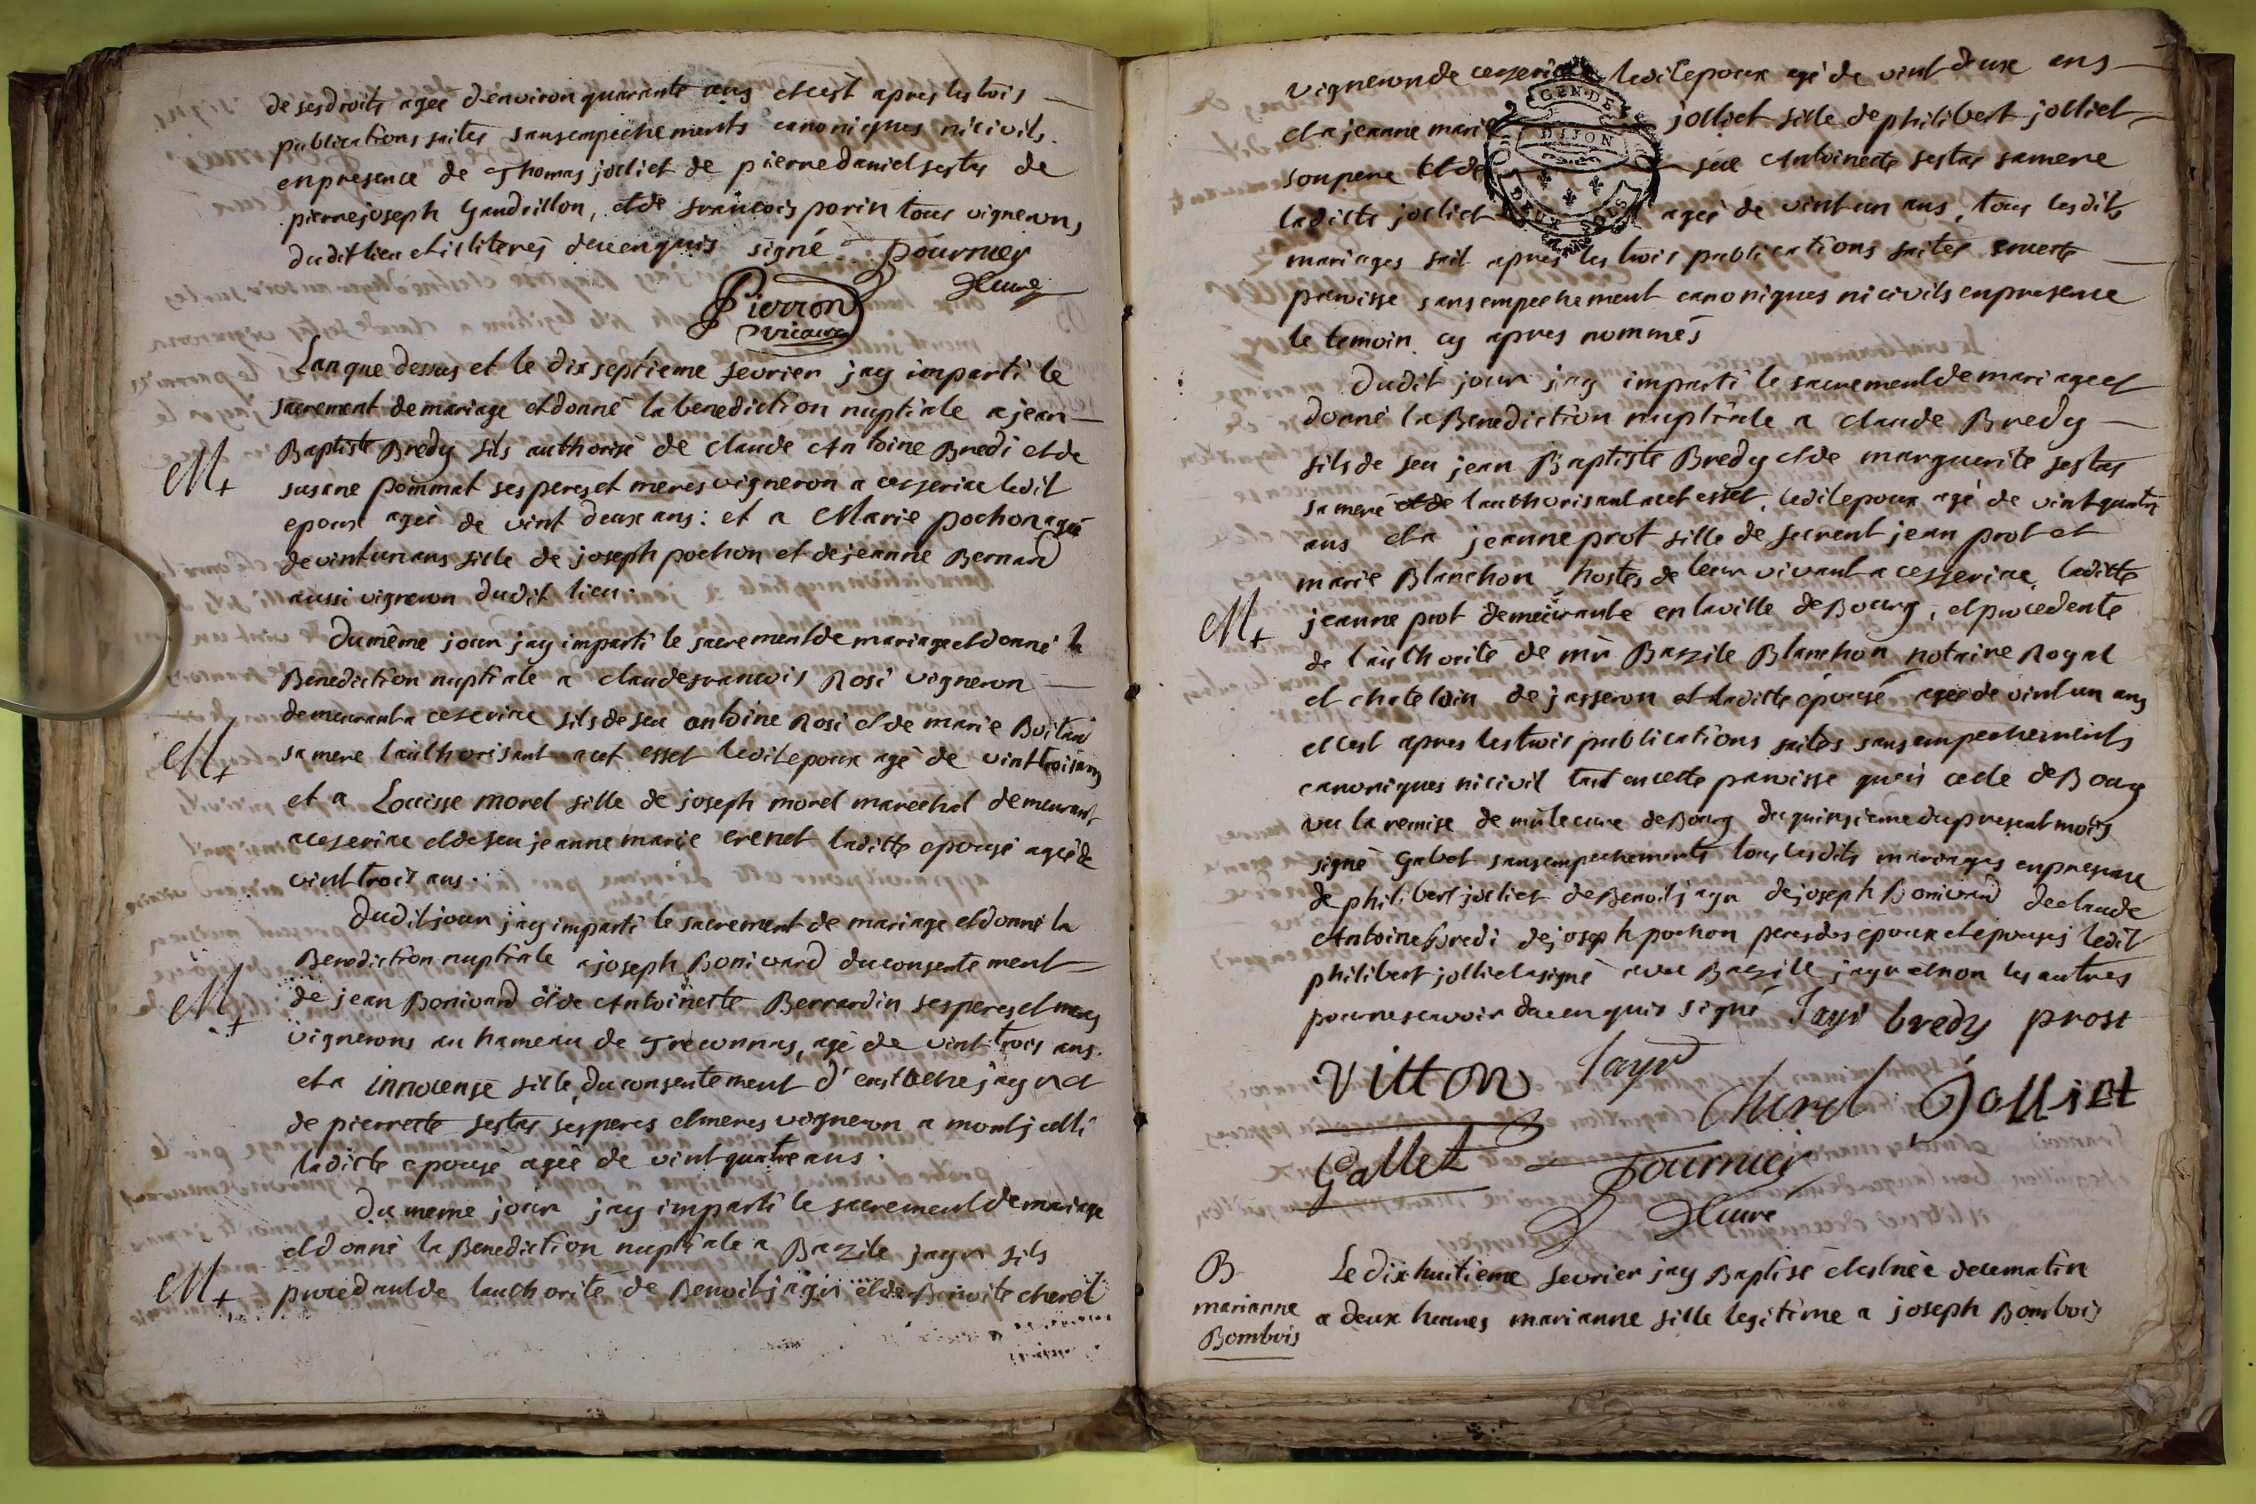 de ses droits agée d'environ quarante ans et c'est apres les trois
publications faites sans empechements canoniques ni civils.
en presence de Thomas jolliet de pierre daniel festas de
pierre joseph Gandrillon, et de francois porin tous vignerons
du dit lieu et illiterés de ce enquis signé Fournier
Curé
Pierron
vicaire
L'an que dessus et le dix septieme fevrier jay imparti le
sacrement de mariage et donné la benediction nuptiale a jean
Baptiste Bredy fils authorisé de claude Antoine Bredi et de
M+
susane pommat ses peres et meres vigneron a cezeriac ledit
epoux agée de vint deux ans : et a Marie pochon agée
de vint un ans fille de joseph pochon et de jeanne Bernard
aussi vigneron dudit lieu.
Du même jour jay imparti le sacrement de mariage et donné la
Benediction nuptiale a claude francois Rosi vigneron
demeurant a cezeriac fils de feu antoine Rosi et de marie
M+
sa mere l'authorisant a cet effet ledit epoux agé de vint trois ans
et a Louisse morel fille de joseph morel marechal demeurant
a cezeriac et de feu jeanne marie crenet laditte epouse agée de
vint trois ans.
Dudit jour jay imparti le sacrement de mariage et donné la
Benediction nuptiale a joseph Bonivard du consentement
M+
de jean Bonivard et de Antoinette Bernardin ses peres et meres
vignerons au hameau de Treconnas, agé de vint trois ans.
et a innocense fille du consentement d'eustache jayr et
de pierrette festas ses peres et meres vigneron a montjulli
laditte epouse agée de vint quatre ans.
Du meme jour jay imparti le sacrement de mariage
et donné la Benediction nuptiale a Bazile jayr fils
M+
procedant de lauthorité de Benoit jayr et de Benoite cherel
vigneron de cezeriac ledit epoux agé de vint deux ans
et a jeanne marie jolliet fille de philibert jolliet
GEN. DE
DIJON
DEUX SOLS
son pere et de feue Antoinette festas sa mere
laditte jolliet agée de vint un ans, tous lesdits
mariages fait apres les trois publications faites en cette
paroisse sans empechement canoniques ni civils en presence
le temoin cy apres nommés
Dudit jour jay imparti le sacrement de mariage et
donné la Benediction nuptiale a claude Bredy
fils de feu jean Baptiste Bredy et de marguerite festas
sa mere et de l'authorisant a cet effet, ledit epoux agé de vint quatre
ans et a jeanne prot fille de furent jean prot et
marie Blanchon hostes de leur vivant a cezeriac laditte
M+
jeanne prot demeurante en la ville de Bourg, et procedente
de l'authorité de mr Bazile Blanchon notaire Royal
et chatelain de jasseron et laditte epouse agée de vint un ans
et c'est apres les trois publications faites sans empechements
canoniques ni civil tant en cette paroisse qu'en celle de Bourg
vu la remise de mr le cure de Bourg du quinsieme du present mois
signé Gabet sans empechements tous lesdits mariages en presence
de philibert jolliet de Benoit jayr de joseph Bonivard de claude
Antoine bredi de joseph pochon peres des epoux et epouses ledit
philibert jolliet a signé avec Bazille jayr et non les autres
pour ne scavoir de ce enquis signé Jayr bredy prost
Vitton Jayr
Cherel Jolliet
Gallet
Fournier
Curé
B
marianne
Bombois
Le dix huitieme fevrier jay Baptisé et est née de ce matin
a deux heures marianne fille legitime a joseph Bombois